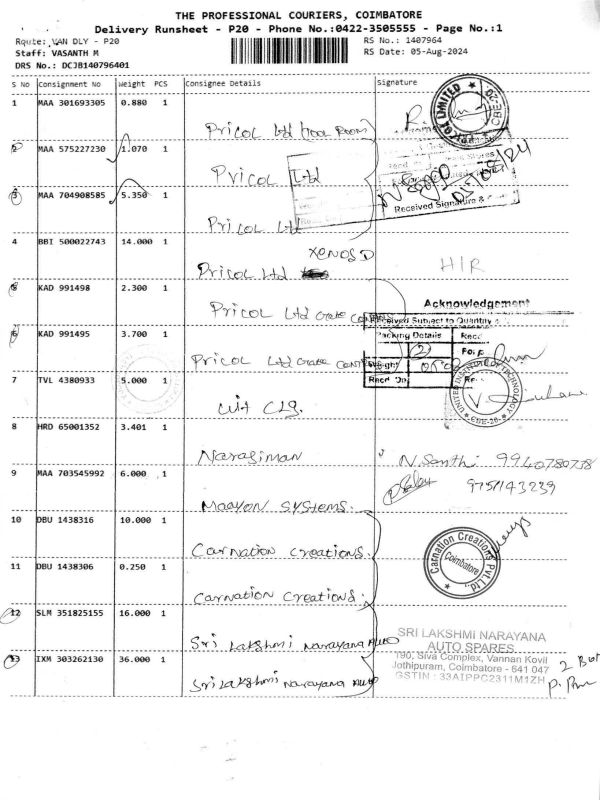 THE PROFESSIONAL COURIERS, COIMBATORE
Delivery Runsheet - P20 - Phone No.:0422-3505555 - Page No.:1
Route: VAN DLY - P20
RS No.: 1407964
Staff: VASANTH M
RS Date: 05-Aug-2024
DRS No.: DCJB140796401
S No Consignment No Weight PCS Consignee Details Signature
1 MAA 301693305 0.880 1
Pricol Ltd (Tool Room)
2 MAA 575227230 1.070 1
Pricol Ltd
3 MAA 704908585 5.350 1
Received Signature &
Pricol Ltd
4 BBI 500022743 14.000 1
XENOS D
Pricol Ltd
HIR
5 KAD 991498 2.300 1
Acknowledgement
Pricol Ltd
Received Subject to Quantity &
6 KAD 991495 3.700 1
Packing Details
Pricol Ltd
7 TVL 4380933 5.000 1
UNITED INSTITUTE OF TECHNOLOGY
CBE-20
Uit Clg.
8 HRD 65001352 3.401 1
Narasiman
N. Santhi 9940780778
9 MAA 703545992 6.000 1
9751143239
Maayon Systems.
10 DBU 1438316 10.000 1
Carnation Creations.
Carnation Creations Pvt Ltd
Coimbatore
11 DBU 1438306 0.250 1
Carnation Creations.
12 SLM 351825155 16.000 1
Sri Lakshmi Narayana Auto
SRI LAKSHMI NARAYANA
AUTO SPARES
190, Siva Complex, Vannan Kovil
13 IXM 303262130 36.000 1
Jothipuram, Coimbatore - 641 047
GSTIN : 33AIPPC2311M1ZH
Sri Lakshmi Narayana Auto